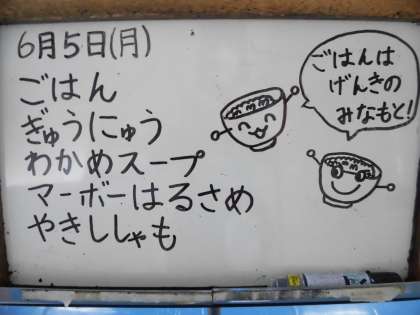 6月5日(月)
ごはん
ぎゅうにゅう
わかめスープ
マーボーはるさめ
やきししゃも
ごはんは
げんきの
みなもと!